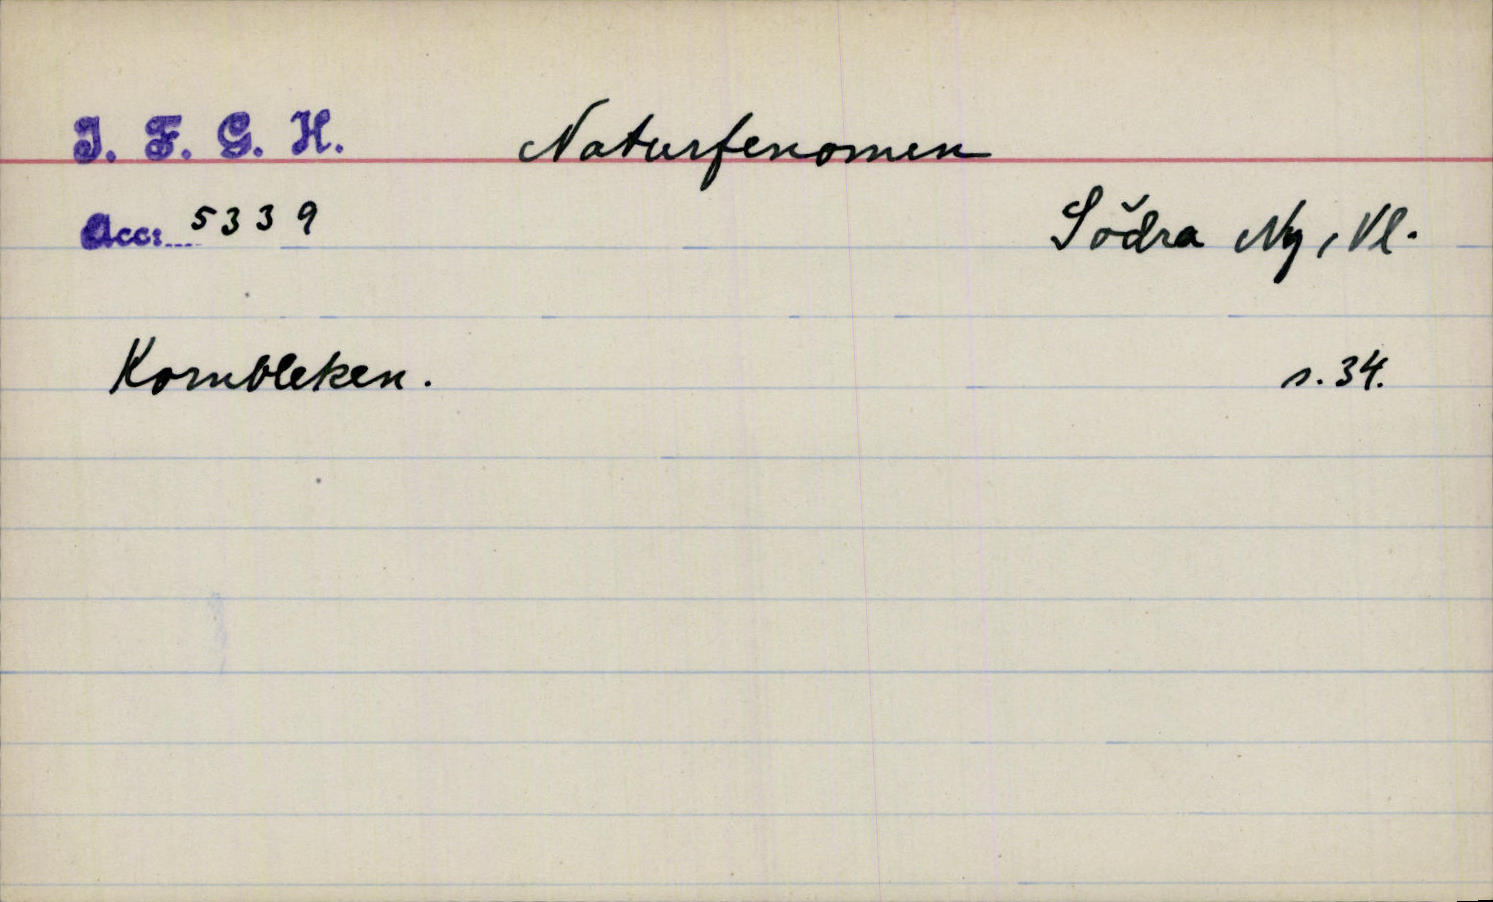 I. F. G. H. Naturfenomen
Acc: 5339 Södra Ny, Vl.
Kornbleken. s. 34.